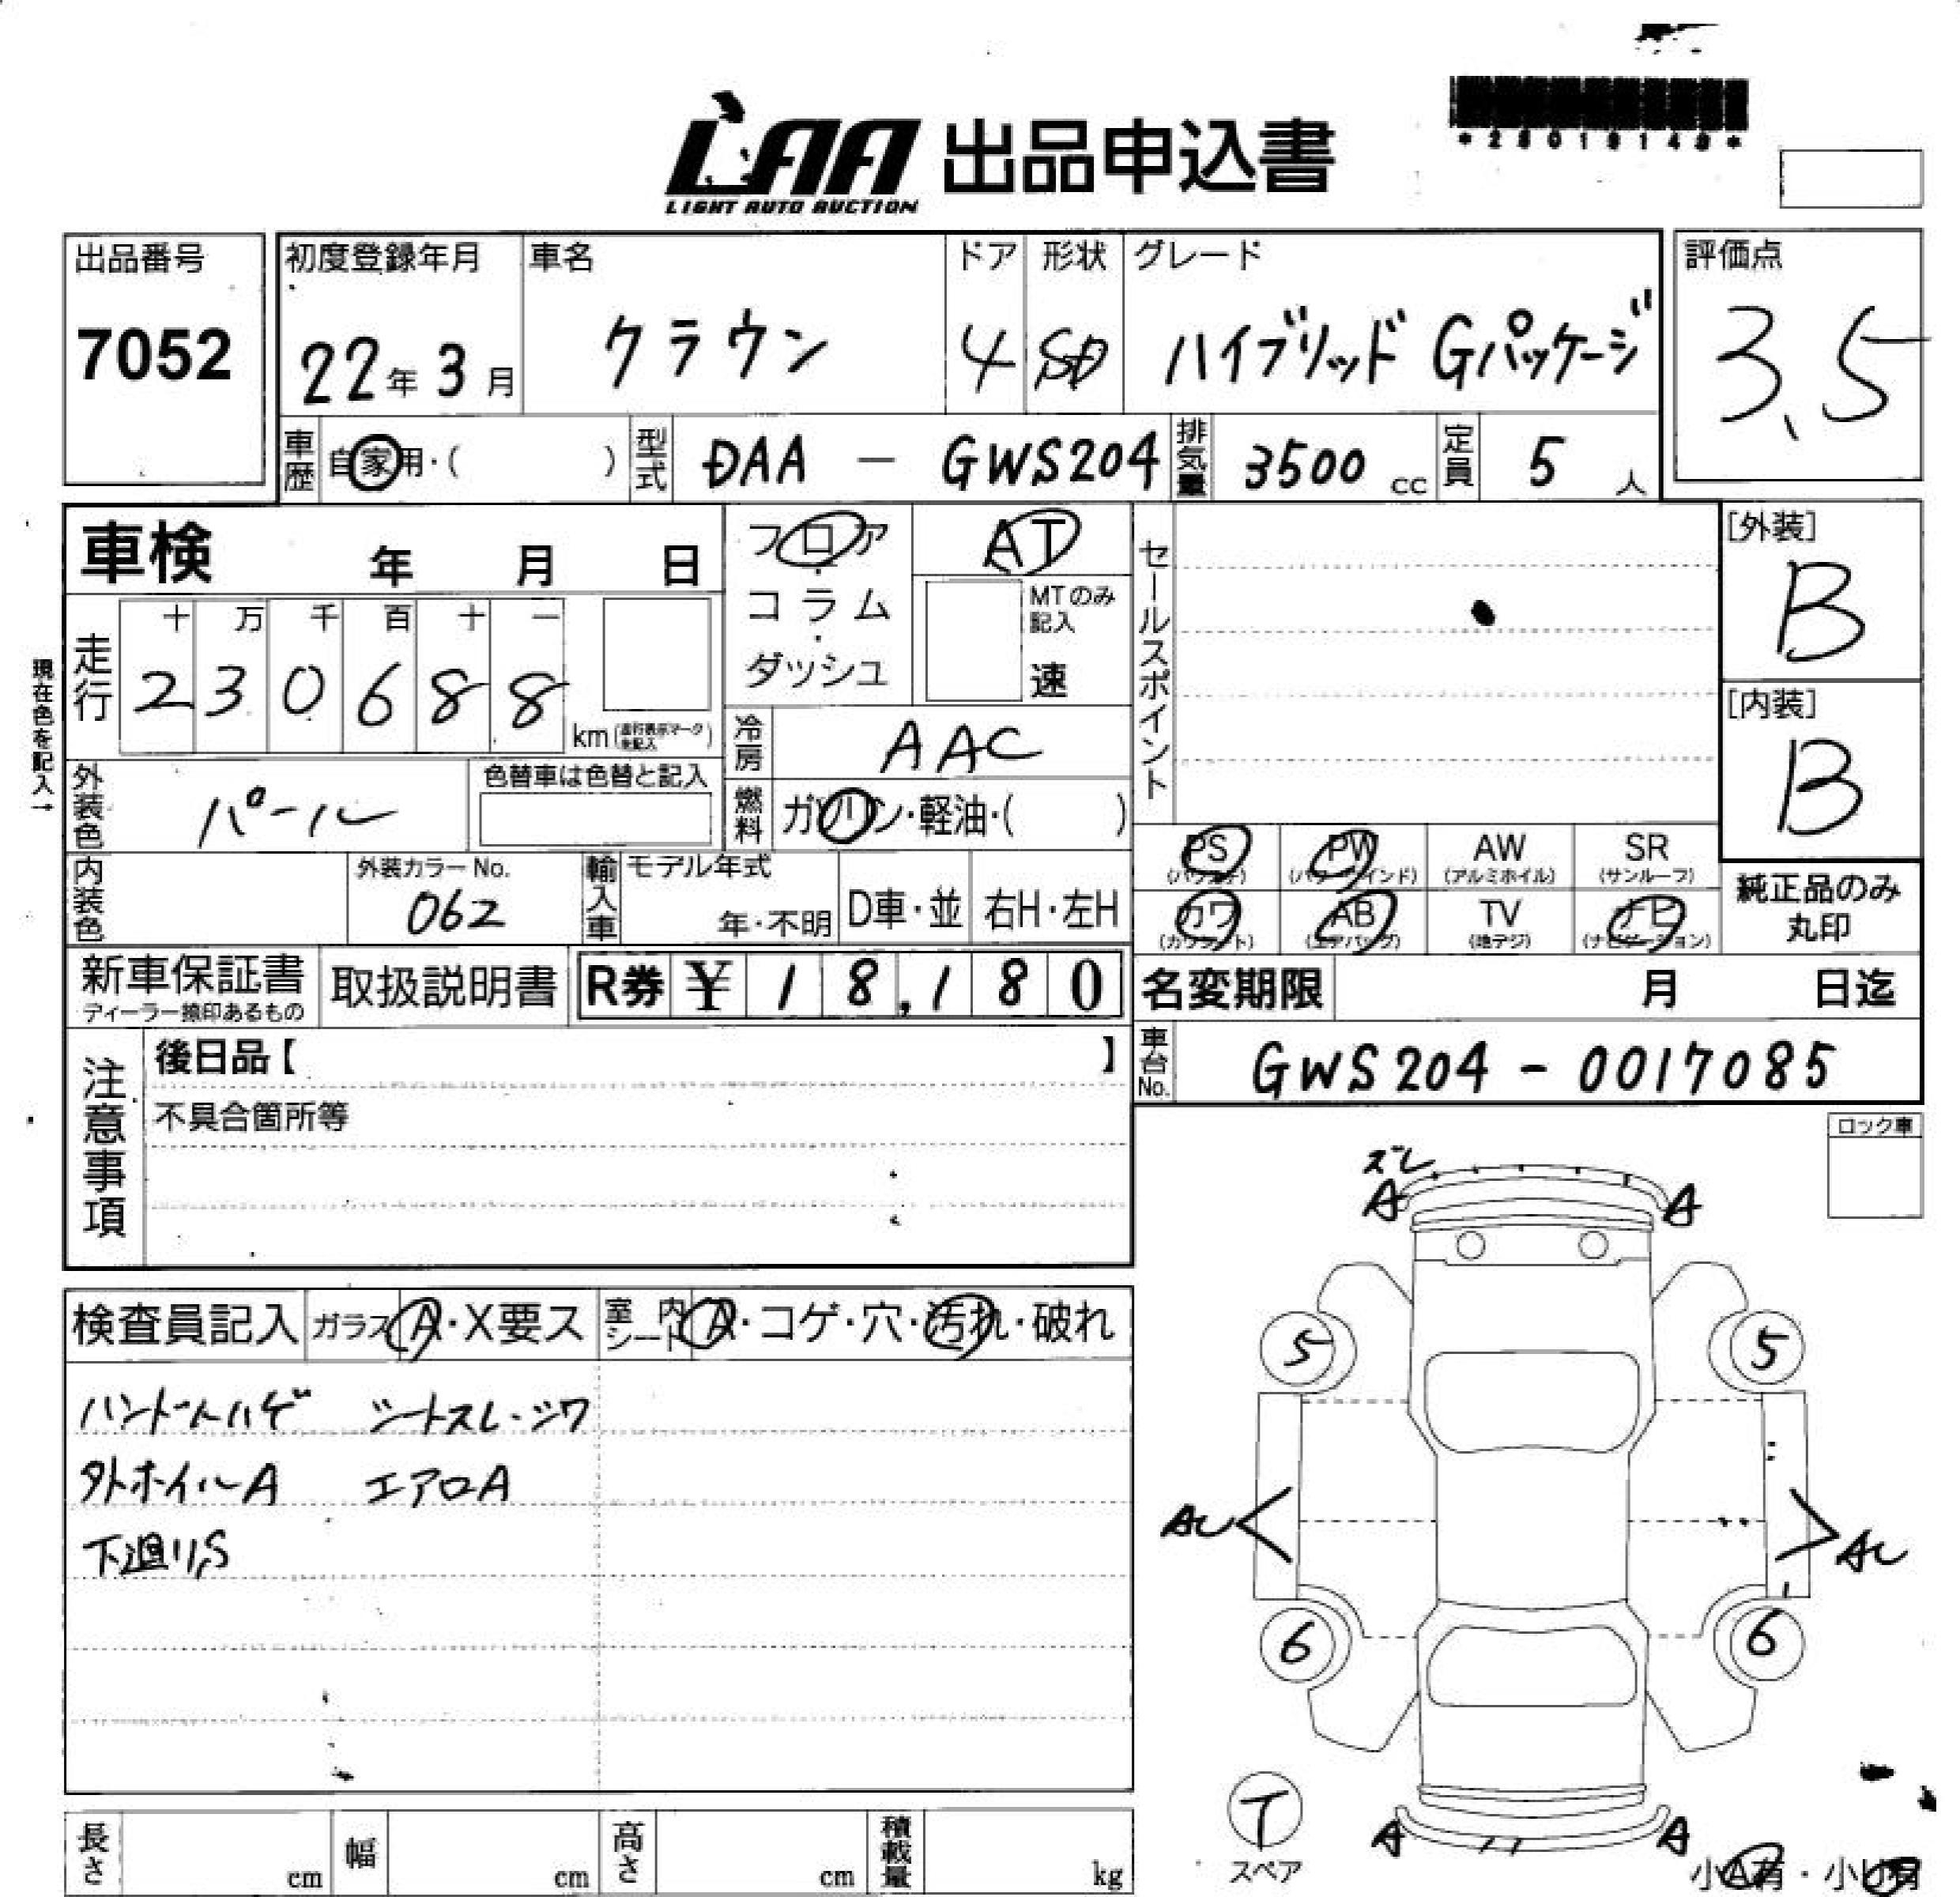 LAA 出品申込書
LIGHT AUTO AUCTION
出品番号
7052
初度登録年月
22年3月
車名
クラウン
ドア
4
形状
SD
グレード
ハイブリッド Gパッケージ
評価点
3.5
車歴
自家用・( )
型式
DAA - GWS204
排気量
3500 cc
定員
5 人
車検 年 月 日
フロア・コラム・ダッシュ
AT
MTのみ記入
速
セールスポイント
[外装]
B
[内装]
B
走行
十 万 千 百 十 一
2 3 0 6 8 8
km
現在色を記入→
冷房
AAC
外装色
パール
色替車は色替と記入
燃料
ガソリン・軽油・( )
内装色
外装カラーNo.
062
輸入車
モデル年式
年・不明
D車・並
右H・左H
PS
PW
(パワーウインド)
AW
(アルミホイル)
SR
(サンルーフ)
カワ
(カワシート)
AB
(エアバッグ)
TV
(地デジ)
ナビ
(ナビゲーション)
純正品のみ丸印
新車保証書
取扱説明書
R券 ¥ 18,180
名変期限 月 日迄
車台No.
GWS204 - 0017085
注意事項
後日品【 】
不具合箇所等
ロック車
ズレ
A A
検査員記入
ガラス A・X要ス
室内シート A・コゲ・穴・汚れ・破れ
ハンドルハゲ シートスレ・シワ
外ホイルA エアロA
下廻りS
5 5
AU AU
6 6
T
スペア
A A
小A有・小U有
長さ cm
幅 cm
高さ cm
積載量 kg